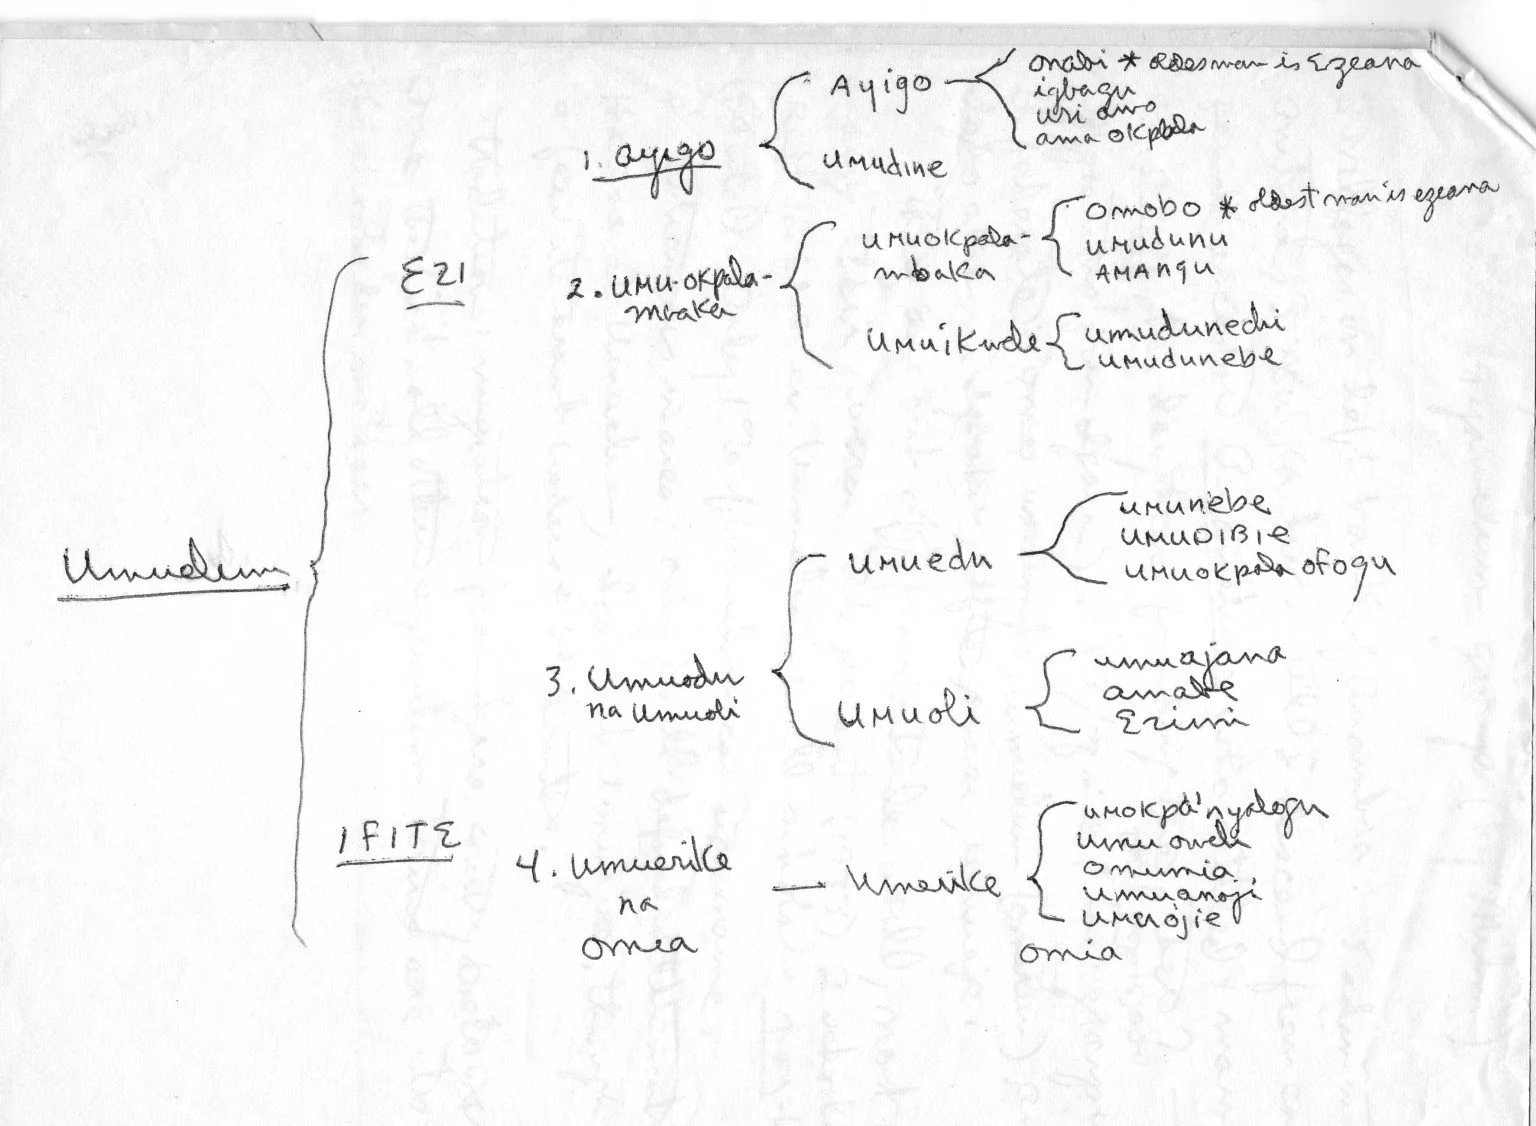 Umudim
EZI
1. Ayigo
Ayigo
onabi * oldesman is Ezeana
igbagu
uri awo
ama okpala
umudine
2. umu-okpala-
mbaka
umuokpala-
mbaka
omobo * oldest man is ezeana
umudunu
AMANGU
umuikwele
umudunechi
umudunebe
IFITE
3. Umuodu
na umuoli
umuedu
umunebe
UMUDIBIE
umuokpala ofogu
umuoli
umuajana
amabe
Ezimi
4. umuerike
na
omia
umerike
umokpa'nyalogu
umu owele
omumia
umuanoji
umuojie
omia